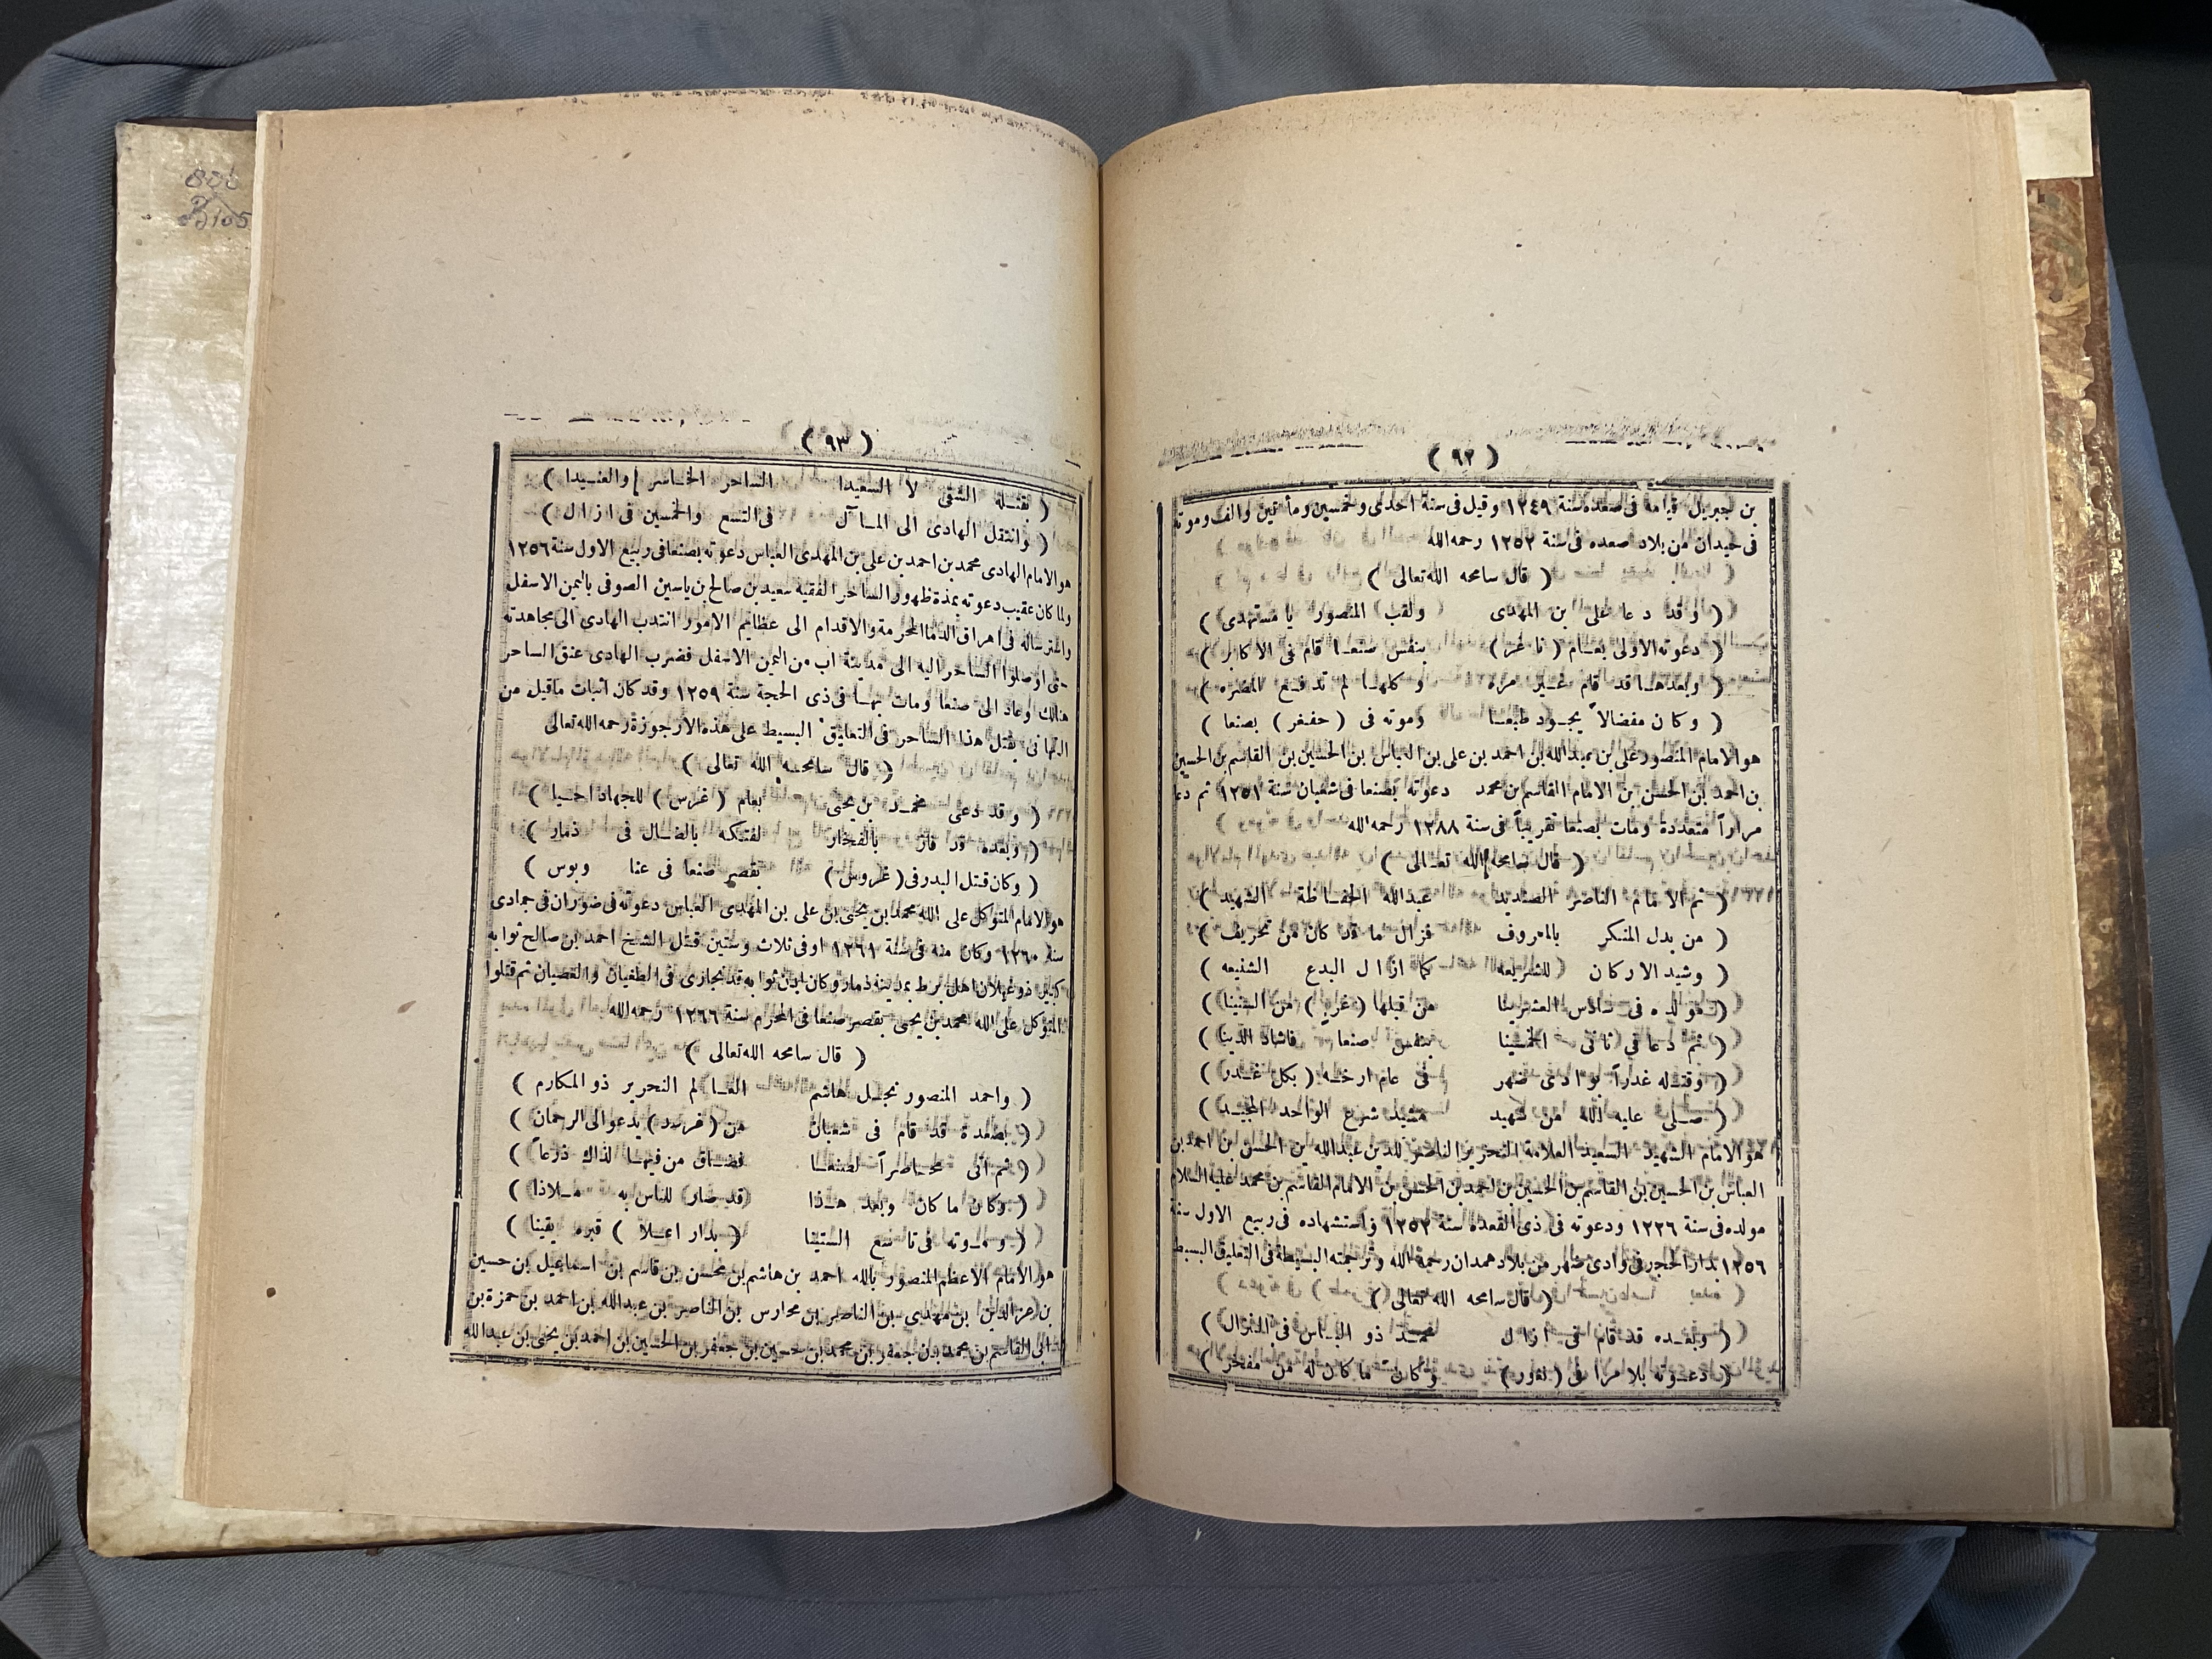 ( ٩٢ )
بن جبريل قيامه فى صعده سنة ١٢٤٩ وقيل فى سنة احدى وخمسين ومأتين والف وموته
فى حيدان من بلاد صعده فى سنة ١٢٥٢ رحمه الله
( قال سامحه الله تعالى )
( وقد دعا على بن المهدى ولقب المنصور يا مستهدى )
( دعوته الاولى بعـام ( نا غر ) بنفس صنعـا قام فى الاكابر )
( وبعدهـا قد قام غـير مره وكلهـا لم تدفـع المضره )
( وكان مفضالاً يجـود طبعـا وموته فى ( حفغر ) بصنعا )
هو الامام المنصور على بن عبد الله بن احمد بن على بن العباس بن الحسين بن القاسم بن الحسين
بن احمد بن الحسن بن الامام القاسم بن محمد دعوته بصنعا فى شعبان سنة ١٢٥١ ثم دعا
مراراً متعددة ومات بصنعا تقريباً فى سنة ١٢٨٨ رحمه الله
( قال سامحه الله تعـالى )
( ثم الامام الناصر الصنديد عبد الله الحفـاظة الشهيد )
( من بدل المنكر بالمعروف فزال ما قد كان من تحريف )
( وشيد الاركان للشريعه كما ازال البدع الشنيعه )
( مولده فى سادس العشرينا من قبلها ( غرب ) من السنينا )
( ثم دعا فى ثانى الخمسينا بنفس صنعا فاشاد الدينا )
( وقتـله غدراً بوادى ضهر فى عام ارخـه ( بكل غـدر )
( صـلى عليه الله من شهيد مشيد شرع الواحد المجيـد )
هو الامام الشهيد السعيد العلامة النحرير الناصر للدين عبد الله بن الحسن بن احمد بن
العباس بن الحسين بن القاسم بن الحسين بن احمد بن الحسن بن الامام القاسم بن محمد عليه السلام
مولده فى سنة ١٢٢٦ ودعوته فى ذى القعدة سنة ١٢٥٢ واستشهاده فى ربيع الاول سنة
١٢٥٦ بدار الحجر فى وادى ضهر من بلاد همدان رحمه الله وترجمته البسيطة فى التعليق البسيط
( قال سامحه الله تعالى )
( وبعـده قد قام فى ازال محمـد ذو البـاس فى النزال )
( دعـوته بلا مرا فى ( نغور ) وكان ما كان له من مفخر )
( ٩٣ )
( بقتـله الشقى لا السعيدا الساحر الخـاسر والعنـيدا )
( وانتقل الهادى الى المـآل فى التسع والخمسين فى ازال )
هو الامام الهادى محمد بن احمد بن على بن المهدى العباس دعوته بصنعا فى ربيع الاول سنة ١٢٥٦
ولما كان عقيب دعوته بمدة ظهور الساحر الفقيه سعيد بن صالح بن ياسين الصوفى باليمن الاسفل
واسترساله فى اهراق الدما المحرمة والاقدام الى عظايم الامور انتدب الهادى الى مجاهدته
حتى اوصلوا الساحر اليه الى مدينة اب من اليمن الاسفل فضرب الهادى عنق الساحر
هنالك وعاد الى صنعا ومات بهـا فى ذى الحجة سنة ١٢٥٩ وقد كان اثبات ما قيل من
التهانى بقتل هذا الساحر فى التعليق البسيط على هذه الارجوزة رحمه الله تعالى
( قال سامحـه الله تعالى )
( وقد دعى محمـد بن يحيى بعام ( غرس ) للجهاد احـيا )
( وبعده قد فاز بالفخار لفتكه بالضـال فى ذمار )
( وكان قتل البدر فى ( غروس ) بقصر صنعا فى عنا وبوس )
هو الامام المتوكل على الله محمد بن يحيى بن على بن المهدى العباس دعوته فى ضوران فى جمادى
سنة ١٢٦٠ وكان منه فى سنة ١٢٦١ او فى ثلاث وستين قتل الشيخ احمد بن صالح ثوابه
كبير ذو غيلان اهل برط بمدينة ذمار وكان ابن ثوابه قد تجارى فى الطغيان والعصيان ثم قتلوا
المتوكل على الله محمد بن يحيى بقصر صنعا فى المحرم سنة ١٢٦٦ رحمه الله
( قال سامحه الله تعالى )
( واحمد المنصور نجـل هاشم العـالم النحرير ذو المكارم )
( بصعدة قد قام فى شعبان من ( غرسد ) يدعو الى الرحمان )
( ثم اتى محـاصراً لصنعـا فضـاق من فيهـا لذاك ذرعاً )
( وكان ما كان وبعد هـذا قد صار للناس به مـلاذا )
( ومـوته فى تاسع الستينا ( بدار اعـلا ) قبره يقينا )
هو الامام الاعظم المنصور بالله احمد بن هاشم بن محسن بن قاسم بن اسماعيل بن حسين
بن عز الدين بن مهدى بن الناصر بن محارس بن الناصر بن عبد الله بن احمد بن حمزة بن
ابى القاسم بن محمد بن جعفر بن محمد بن حسين بن جعفر بن الحسين بن احمد بن يحيى بن عبد الله